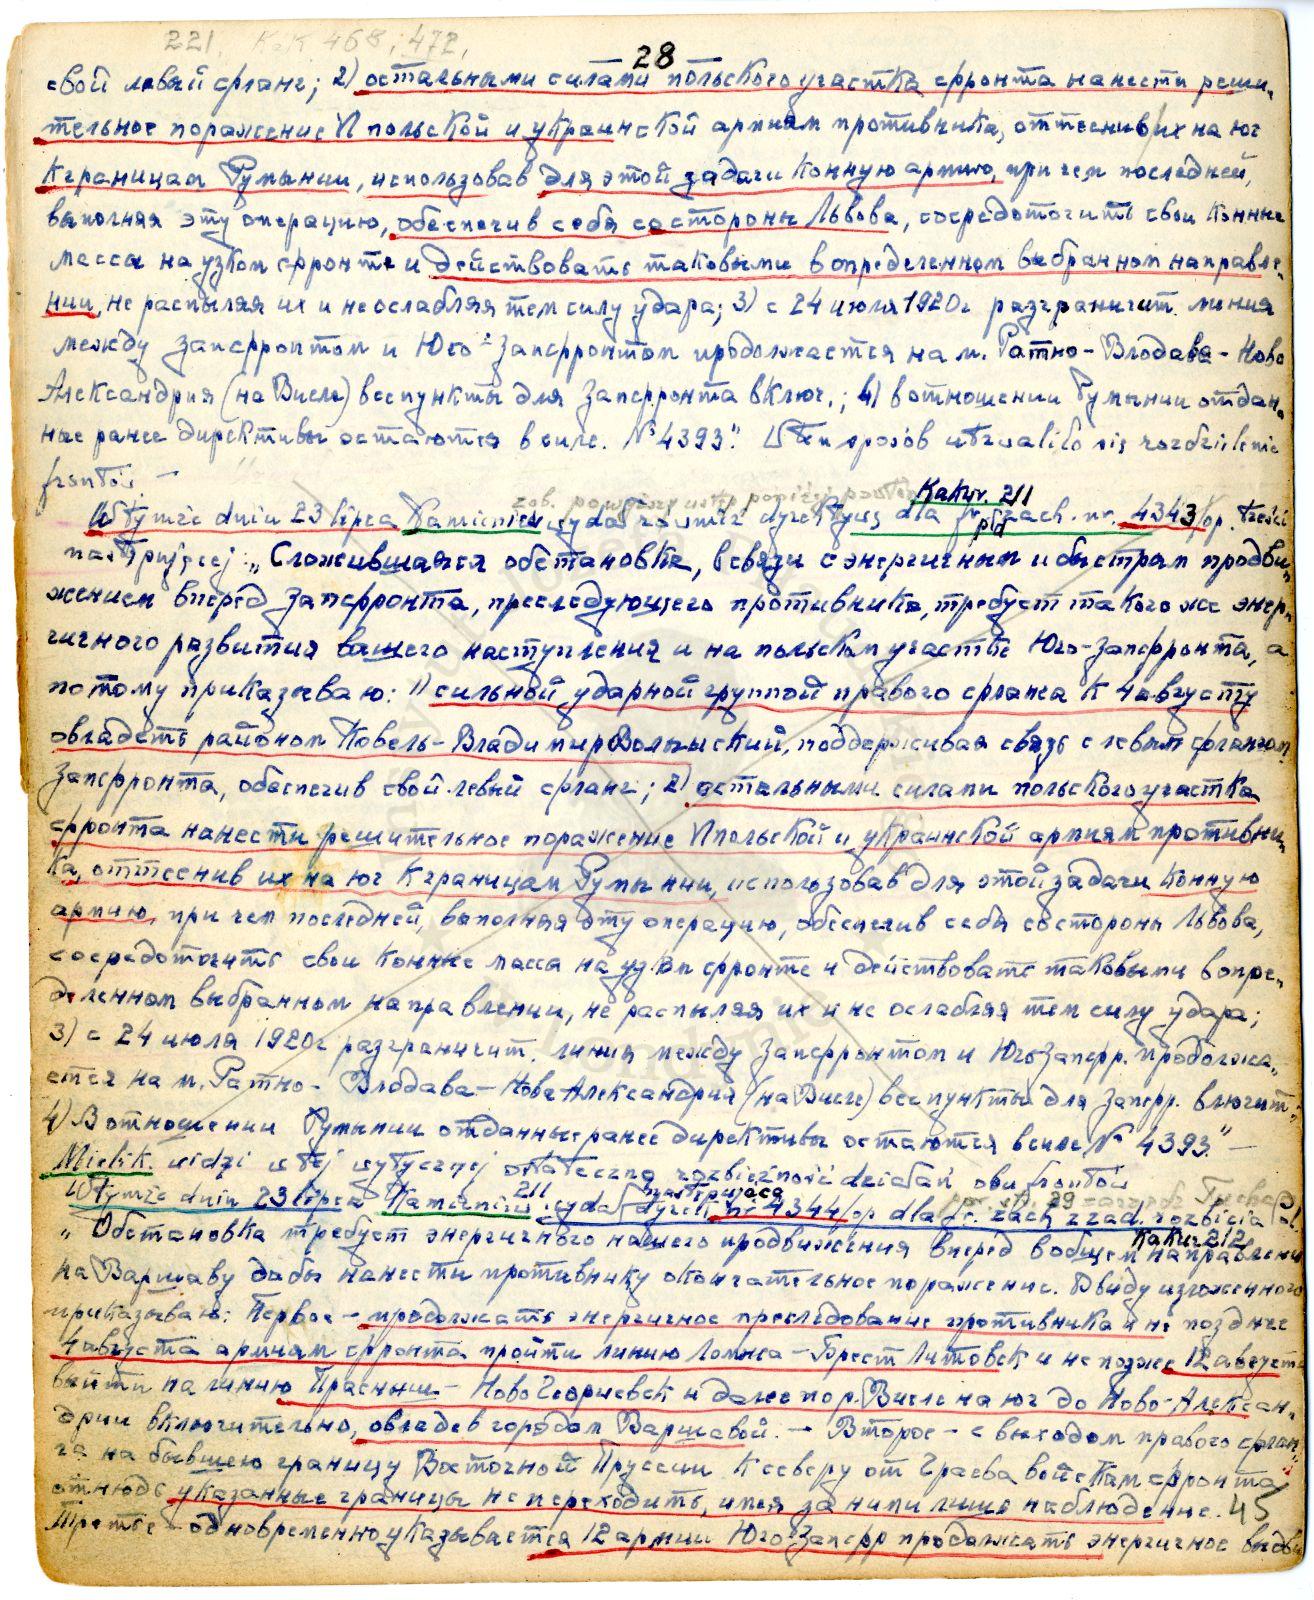 221. КаК 468, 472,
28
свой левый фланг; 2) остальными силами польского участка фронта нанести реши-
тельное поражение VI польской и украинской армиям противника, оттеснив их на юг
к границам Румынии, использовав для этой задачи Конную армию, при чем последней,
выполняя эту операцию, обеспечив себя со стороны Львова, сосредоточить свои конные
массы на узком фронте и действовать таковыми в определенном выбранном направле-
нии, не распыляя их и не ослабляя тем силу удара; 3) с 24 июля 1920г разграничит. линия
между Запфронтом и Юго-Запфронтом продолжается на м. Ратно - Влодава - Ново
Александрия (на Висле) все пункты для Запфронта включ.; 4) в отношении Румынии отдан-
ные ранее директивы остаются в силе. № 4393." W ten sposób utrwaliło się rozdzielenie
frontów. —
Kakur. 211
W tymże dniu 23 lipca Kamieniew wydał również dyrektywę dla fr. płd zach. nr. 4343/op. treści
następującej: „Сложившаяся обстановка, в связи с энергичным и быстрым продви-
жением вперёд Запфронта, преследующего противника, требует такого же энер-
гичного развития вашего наступления и на польском участке Юго-Запфронта, а
потому приказываю: 1) сильной ударной группой правого фланга к 4 августу
овладеть районом Ковель - Владимир Волынский, поддерживая связь с левым флангом
Запфронта, обеспечив свой левый фланг; 2) остальными силами польского участка
фронта нанести решительное поражение VI польской и украинской армиям противни-
ка, оттеснив их на юг к границам Румынии, использовав для этой задачи Конную
армию, при чем последней, выполняя эту операцию, обеспечив себя со стороны Львова,
сосредоточить свои конные массы на узком фронте и действовать таковыми в опре-
деленном выбранном направлении, не распыляя их и не ослабляя тем силу удара;
3) с 24 июля 1920г разграничит. линия между Запфронтом и Юго-Запфр. продолжа-
ется на м. Ратно - Влодава - Ново Александрия (на Висле) все пункты для Запфр. включит.;
4) В отношении Румынии отданные ранее директивы остаются в силе № 4393." —
Mielik. widzi w tej wytycznej ostateczną rozbieżność działań obu frontów
W tymże dniu 23 lipca Kamieniew 211 wydał następującą dyrekt. nr 4344/op dla fr. zach z zad. rozbicia
Kakur 212
„Обстановка требует энергичного нашего продвижения вперёд в общем направлении
на Варшаву дабы нанести противнику окончательное поражение. Ввиду изложенного
приказываю: Первое - продолжать энергичное преследование противника и не позднее
4 августа армиям фронта пройти линию Ломжа - Брест Литовск и не позже 12 августа
выйти на линию Прасныш - Ново Георгиевск и далее по р. Висле на юг до Ново-Алексан-
дрии включительно, овладев городом Варшавой. — Второе - с выходом правого флан-
га на бывшею границу Восточной Пруссии к северу от Граева войскам фронта
отнюдь указанные границы не переходить, имея за ними лишь наблюдение. 45
Третье - одновременно указывается 12 армии Юго-Запфр продолжать энергичное выдви